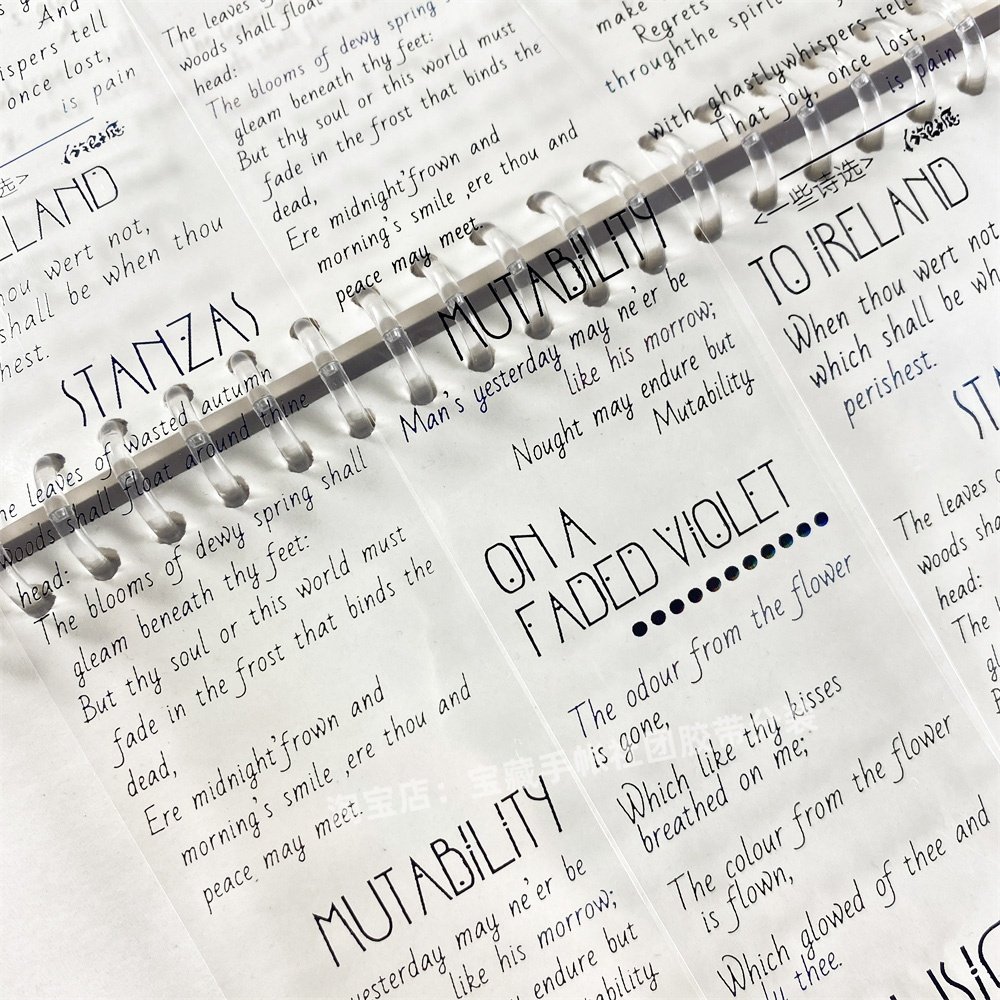 And
ispers tell
once lost,
is pain
选>
LAND
hou wert not,
shall be when thou
hest.
STANZAS
The leaves of wasted autumn
woods shall float around thine
head:
The blooms of dewy spring shall
gleam beneath thy feet:
But thy soul or this world must
fade in the frost that binds the
dead,
Ere midnight'frown and
morning's smile ,ere thou and
peace may meet.
MUTABiLiTY
yesterday may ne'er be
like his morrow;
endure but
tability
The leaves of
woods shall float
head:
The blooms of dewy spring s
gleam beneath thy feet:
But thy soul or this world must
fade in the frost that binds the
dead,
Ere midnight'frown and
morning's smile ,ere thou and
peace may meet.
MUTABiLiTY
Man's yesterday may ne'er be
like his morrow;
Nought may endure but
Mutability
ON A
FADED ViOLET
The odour from the flower
is gone,
Which like thy kisses
breathed on me;
The colour from the flower
is flown,
Which glowed of thee and
ly thee.
make
Regrets
throughthe spirit
with ghastlywhispers tell
That joy, once lost,
is pain
<一些诗选>
TO iRELAND
When thou wert not
which shall be wh
perishest.
STA
The leaves o
woods sha
head:
The b
gl
B
淘宝店：宝藏手帐社团胶带分装